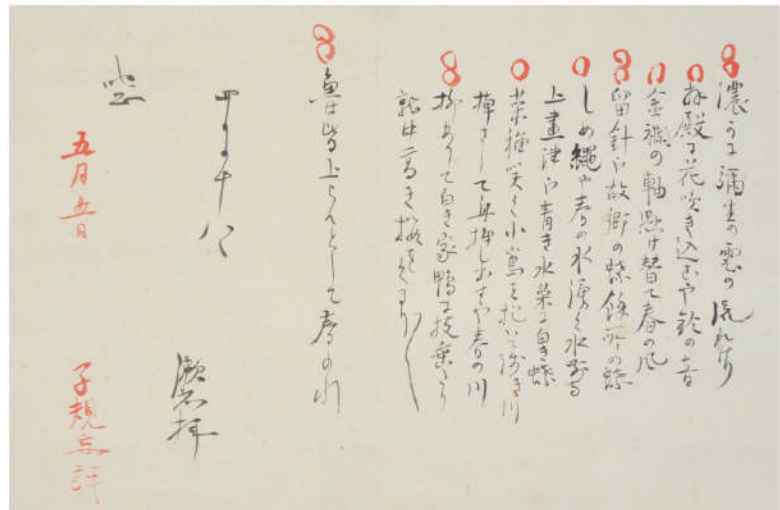 濃かに彌生の雲の流れけり
拝殿に花吹き込むや鈴の音
金襴の軸懸け替て春の風
留針や故郷の蝶餘所の蝶
しめ縄や春の水湧く水前寺
上畫津や青き水菜に白き蝶
菜種咲く小島を抱いて浅き川
棹さして舟押し出すや春の川
柳ありて白き家鴨に枝垂たり
就中高き桜をくるり〱
魚は皆上らんとして春の川
四月十八
漱石拝
五月五日
子規妄評